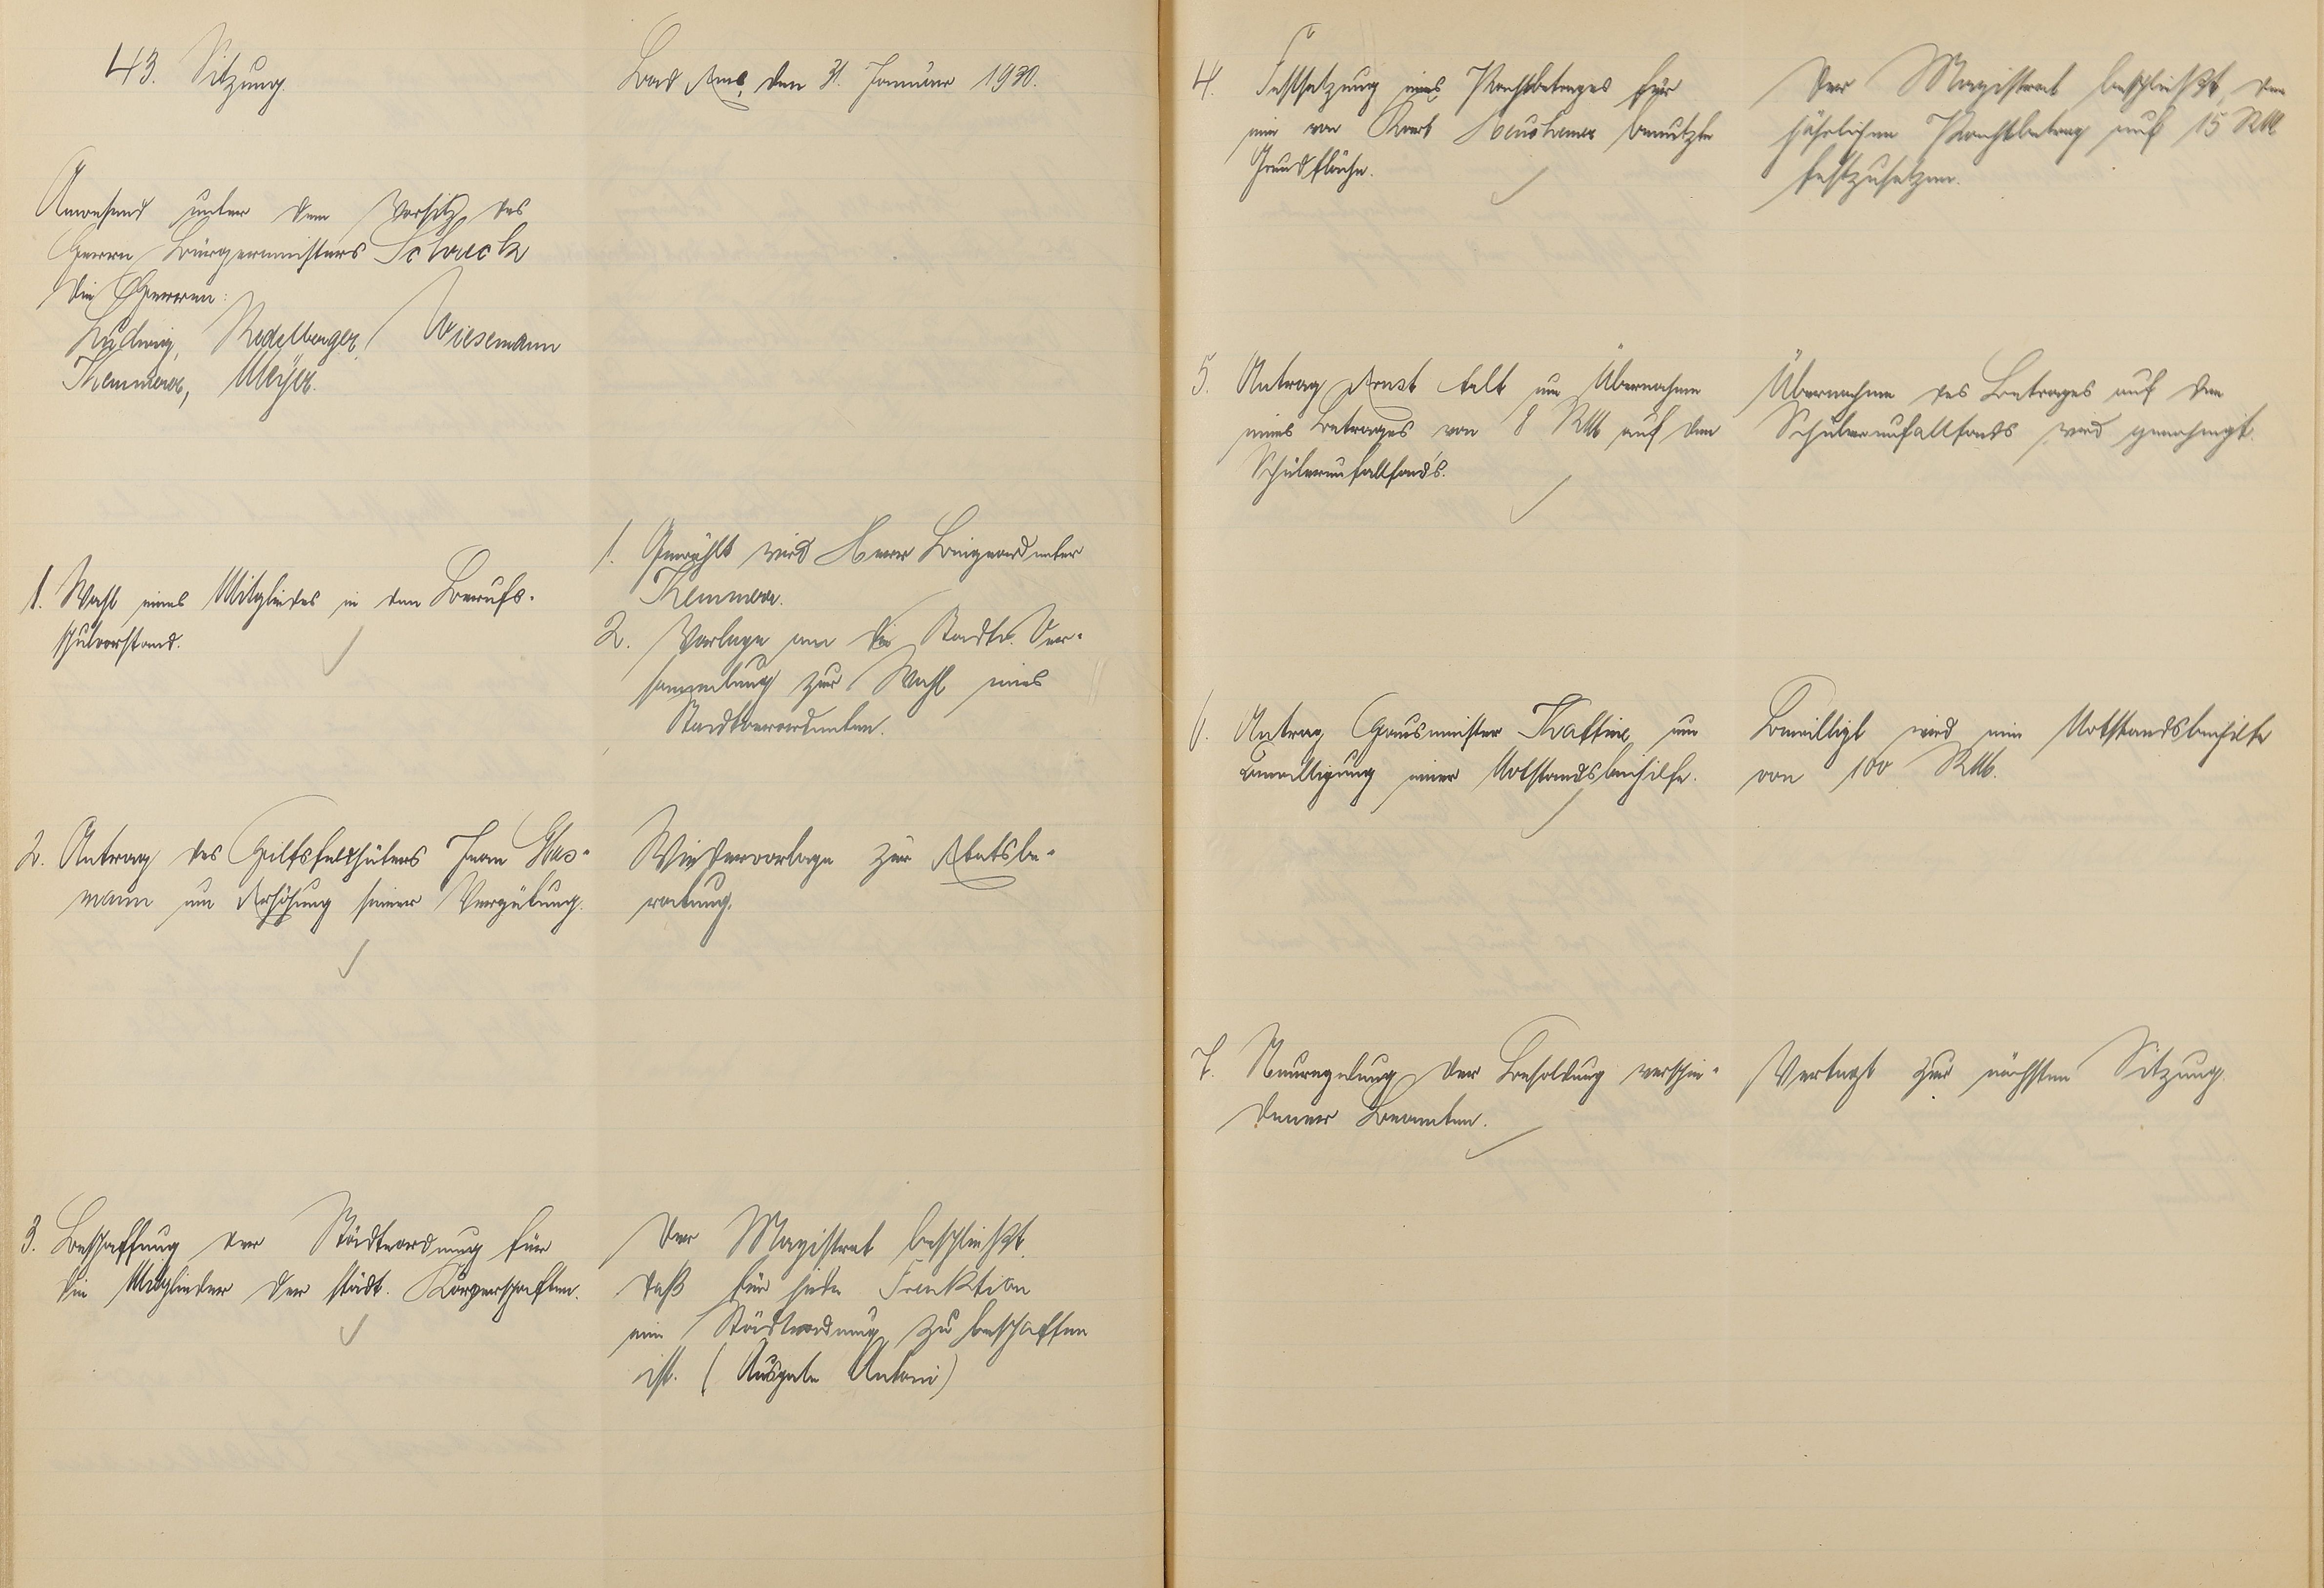 43. Sitzung.
Bad Ems, den 31. Januar 1930.
Anwesend unter dem Vorsitz des
Herrn Bürgermeisters Schreck
die Herren:
Ludwig, Redelberger, Wiesemann
Kemmerer, Meyer.
1. Wahl eines Mitgliedes in den Berufs-
schulvorstand.
1. Gewählt wird Herr Beigeordneter
Kemmerer.
2. Vorlage an die Stadtv. Ver-
sammlung zur Wahl eines
Stadtverordneten.
2. Antrag des Hilfsfeldhüters
mann um Erhöhung seiner Vergütung.
Wiedervorlage zur Etatsbe-
ratung.
3. Beschaffung der Städteordnung für
die Mitglieder der städt. Körperschaften.
Der Magistrat beschließt,
daß für jede Fraktion
eine Städteordnung zu beschaffen
ist. (Ausgabe Antoni)
4. Festsetzung eines Pachtbetrages für
eine von benutzte
Grundfläche.
Der Magistrat beschließt, den
jährlichen Pachtbetrag auf 15 RM
festzusetzen.
5. Antrag Ernst um Übernahme
eines Betrages von 8 RM auf den
Schülerunfallfonds.
Übernahme des Betrages auf den
Schülerunfallfonds wird genehmigt.
6. Antrag Hausmeister um
Bewilligung einer Notstandsbeihilfe.
Bewilligt wird eine Notstandsbeihilfe
von 100 RM.
7. Neuregelung der Besoldung verschie-
dener Beamten.
Vertagt zur nächsten Sitzung.